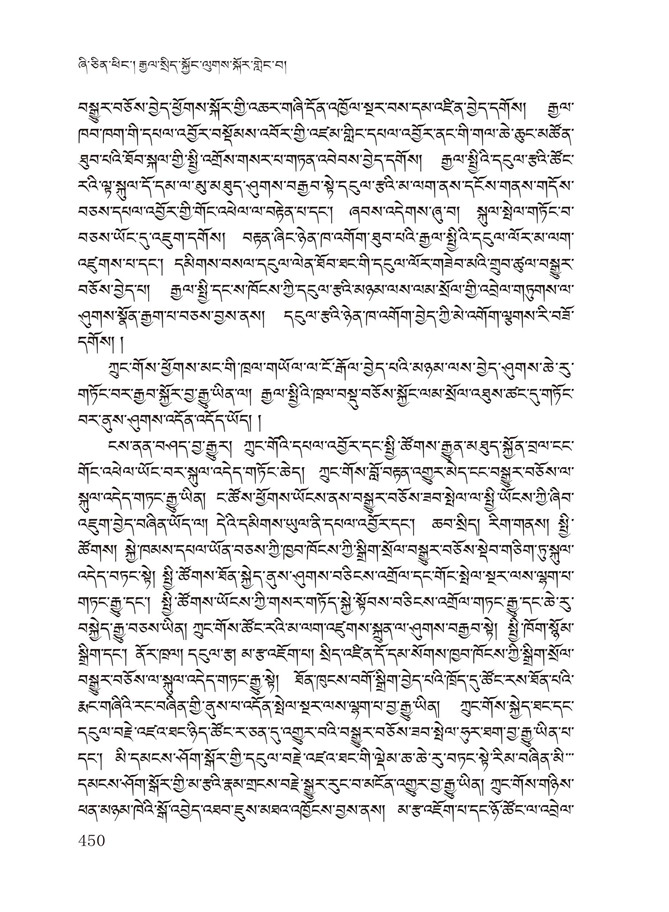 ཞི་ཅིན་ཕིང་། རྒྱལ་སྲིད་སྐྱོང་ལུགས་སྐོར་གླེང་བ།
བསྒྱུར་བཅོས་བྱེད་ཕྱོགས་སྐོར་གྱི་འཆར་གཞི་དོན་འཁྱོལ་སྔར་བས་དམ་འཛིན་བྱེད་དགོས། རྒྱལ་
ཁབ་ཁག་གི་དཔལ་འབྱོར་བསྡོམས་འབོར་གྱི་འཛམ་གླིང་དཔལ་འབྱོར་ནང་གི་གལ་ཆེ་ཆུང་མཚོན་
ཐུབ་པའི་ཐོབ་སྐལ་གྱི་སྤྱི་འགྲོས་གསར་པ་གཏན་འབེབས་བྱེད་དགོས། རྒྱལ་སྤྱིའི་དངུལ་རྩའི་ཚོང་
རའི་ལྟ་སྐུལ་དོ་དམ་ལ་མུ་མཐུད་ཤུགས་བརྒྱབ་སྟེ་དངུལ་རྩའི་མ་ལག་ནས་དངོས་གནས་གདོས་
བཅས་དཔལ་འབྱོར་གྱི་གོང་འཕེལ་ལ་བརྟེན་པ་དང་། ཞབས་འདེགས་ཞུ་བ། སྐུལ་སྤེལ་གཏོང་བ་
བཅས་ཡོང་དུ་འཇུག་དགོས། བརྟན་ཞིང་ཉེན་ཁ་འགོག་ཐུབ་པའི་རྒྱལ་སྤྱིའི་དངུལ་ལོར་མ་ལག་
འཛུགས་པ་དང་། དམིགས་བསལ་དངུལ་ལེན་ཐོབ་ཐང་གི་དངུལ་ལོར་གཟེབ་མའི་གྲུབ་ཚུལ་བསྒྱུར་
བཅོས་བྱེད་པ། རྒྱལ་སྤྱི་དང་ས་ཁོངས་ཀྱི་དངུལ་རྩའི་མཉམ་ལས་ལམ་སྲོལ་གྱི་འབྲེལ་གཏུགས་ལ་
ཤུགས་སྣོན་རྒྱག་པ་བཅས་བྱས་ནས། དངུལ་རྩའི་ཉེན་ཁ་འགོག་བྱེད་ཀྱི་མེ་འགོག་ལྕགས་རི་བཟོ་
དགོས། །
ཀྲུང་གོས་ཕྱོགས་མང་གི་ཁྲལ་གཡོལ་ལ་ངོ་རྒོལ་བྱེད་པའི་མཉམ་ལས་བྱེད་ཤུགས་ཆེ་རུ་
གཏོང་བར་རྒྱབ་སྐྱོར་བྱ་རྒྱུ་ཡིན་ལ། རྒྱལ་སྤྱིའི་ཁྲལ་བསྡུ་བཅོས་སྐྱོང་ལམ་སྲོལ་འཐུས་ཚང་དུ་གཏོང་
བར་ནུས་ཤུགས་འདོན་འདོད་ཡོད། །
ངས་ནན་བཤད་བྱ་རྒྱུར། ཀྲུང་གོའི་དཔལ་འབྱོར་དང་སྤྱི་ཚོགས་རྒྱུན་མཐུད་སྐྱོན་བྲལ་ངང་
གོང་འཕེལ་ཡོང་བར་སྐུལ་འདེད་གཏོང་ཆེད། ཀྲུང་གོས་བློ་བརྟན་འགྱུར་མེད་ངང་བསྒྱུར་བཅོས་ལ་
སྐུལ་འདེད་གཏང་རྒྱུ་ཡིན། ང་ཚོས་ཕྱོགས་ཡོངས་ནས་བསྒྱུར་བཅོས་ཟབ་སྤེལ་ལ་སྤྱི་ཡོངས་ཀྱི་ཞིབ་
འཇུག་བྱེད་བཞིན་ཡོད་ལ། དེའི་དམིགས་ཡུལ་ནི་དཔལ་འབྱོར་དང་། ཆབ་སྲིད། རིག་གནས། སྤྱི་
ཚོགས། སྐྱེ་ཁམས་དཔལ་ཡོན་བཅས་ཀྱི་ཁྱབ་ཁོངས་ཀྱི་སྒྲིག་སྲོལ་བསྒྱུར་བཅོས་སྡེབ་གཅིག་ཏུ་སྐུལ་
འདེད་བཏང་སྟེ། སྤྱི་ཚོགས་ཐོན་སྐྱེད་ནུས་ཤུགས་བཅིངས་འགྲོལ་དང་གོང་སྤེལ་སྔར་ལས་ལྷག་པ་
གཏང་རྒྱུ་དང་། སྤྱི་ཚོགས་ཡོངས་ཀྱི་གསར་གཏོད་སྐྱེ་སྟོབས་བཅིངས་འགྲོལ་གཏང་རྒྱུ་དང་ཆེ་རུ་
བསྐྱེད་རྒྱུ་བཅས་ཡིན། ཀྲུང་གོས་ཚོང་རའི་མ་ལག་འཛུགས་སྐྲུན་ལ་ཤུགས་བརྒྱབ་སྟེ། སྤྱི་ཁོག་སྙོམ་
སྒྲིག་དང་། ནོར་ཁྲལ། དངུལ་རྩ། མ་རྩ་འཇོག་པ། སྲིད་འཛིན་དོ་དམ་སོགས་ཁྱབ་ཁོངས་ཀྱི་སྒྲིག་སྲོལ་
བསྒྱུར་བཅོས་ལ་སྐུལ་འདེད་གཏང་རྒྱུ་སྟེ། ཐོན་ཁུངས་བགོ་སྒྲིག་བྱེད་པའི་ཁྲོད་དུ་ཚོང་རས་ཐོན་པའི་
རྨང་གཞིའི་རང་བཞིན་གྱི་ནུས་པ་འདོན་སྤེལ་སྔར་ལས་ལྷག་པ་བྱ་རྒྱུ་ཡིན། ཀྲུང་གོས་སྐྱེད་ཐང་དང་
དངུལ་བརྗེ་འཛའ་ཐང་ཉིད་ཚོང་ར་ཅན་དུ་འགྱུར་བའི་བསྒྱུར་བཅོས་ཟབ་སྤེལ་ཧུར་ཐག་བྱ་རྒྱུ་ཡིན་པ་
དང་། མི་དམངས་ཤོག་སྒོར་གྱི་དངུལ་བརྗེ་འཛའ་ཐང་གི་ལྡེམ་ཆ་ཆེ་རུ་བཏང་སྟེ་རིམ་བཞིན་མི་
དམངས་ཤོག་སྒོར་གྱི་མ་རྩའི་རྣམ་གྲངས་བརྗེ་སྒྱུར་རུང་བ་མངོན་འགྱུར་བྱ་རྒྱུ་ཡིན། ཀྲུང་གོས་གཉིས་
ཕན་མཉམ་ཁེའི་སྒོ་འབྱེད་འཐབ་ཇུས་མཐའ་འཁྱོངས་བྱས་ནས། མ་རྩ་འཇོག་པ་དང་ཉོ་ཚོང་ལ་འབྲེལ་
450